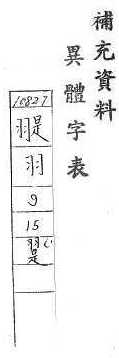 補充資料
異體字表
10827
翨
羽
9
15
翨